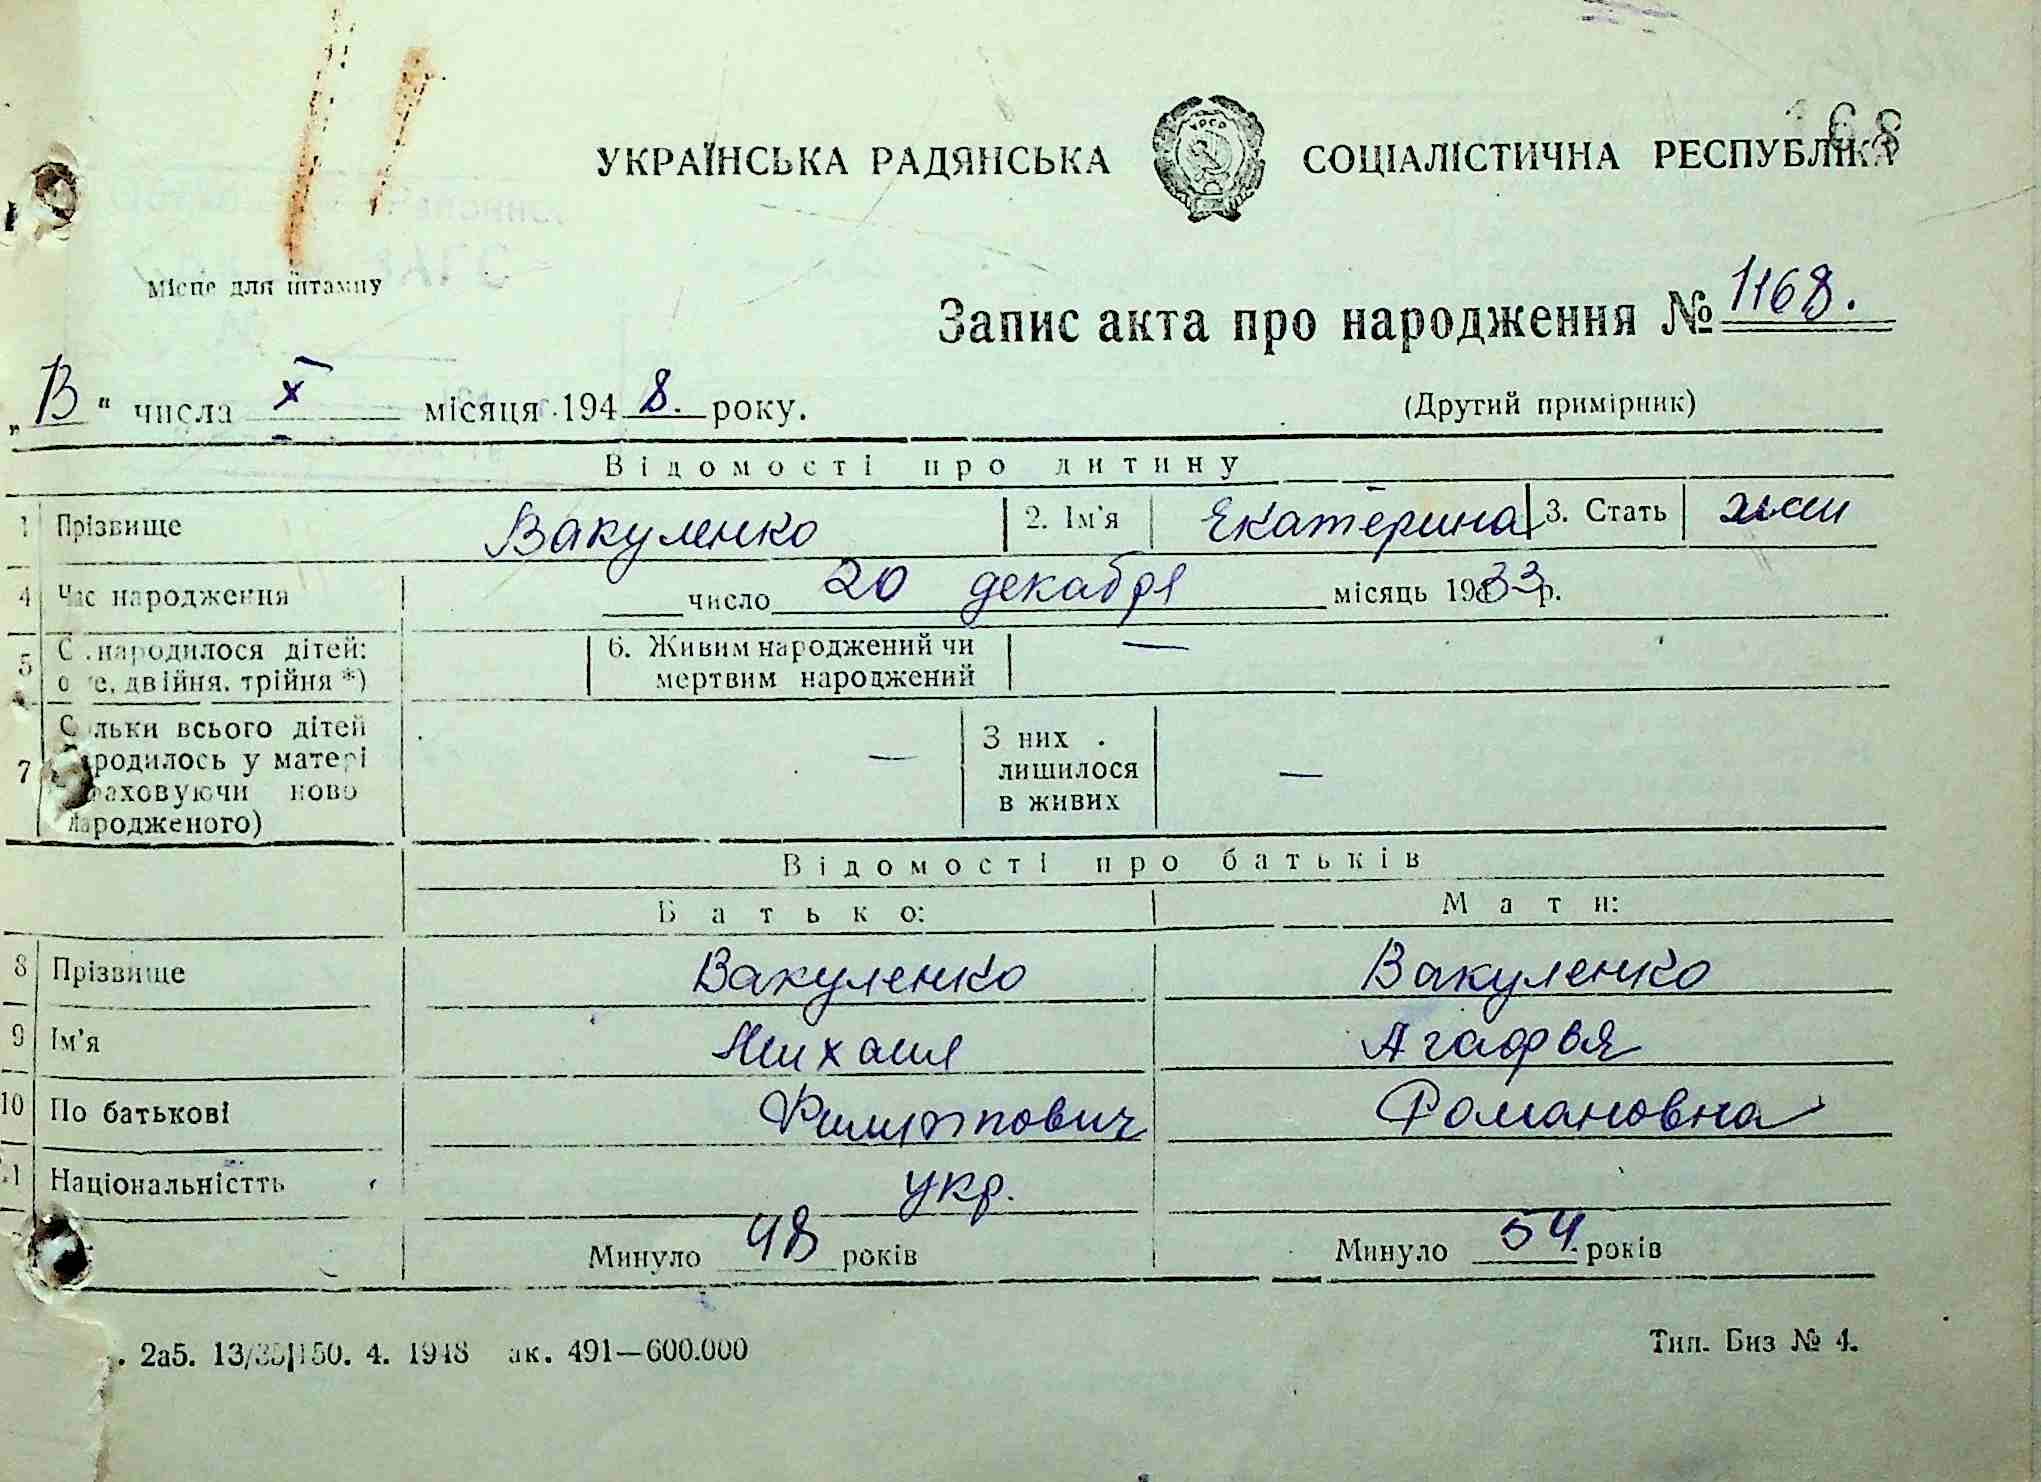 168
УКРАЇНСЬКА РАДЯНСЬКА СОЦІАЛІСТИЧНА РЕСПУБЛІКА
УРСР
Місце для штампу
Запис акта про народження № 1168.
„13" числа X місяця 1948. року.
(Другий примірник)
Відомості про дитину
1 Прізвище Вакуленко 2. Ім'я Екатерина 3. Стать жен
4 Час народження число 20 декабря місяць 1933 р.
5 С народилося дітей: 6. Живим народжений чи —
двійня, трійня *) мертвим народжений
льки всього дітей
7 ародилось у матері — З них — лишилося в живих
раховуючи ново
народженого)
Відомості про батьків
Батько: Мати:
8 Прізвище Вакуленко Вакуленко
9 Ім'я Михаил Агафья
10 По батькові Филиппович Романовна
11 Національністть укр.
Минуло 48 років Минуло 54 років
2а5. 13/ 150. 4. 1948 ак. 491—600.000 Тип. Биз № 4.